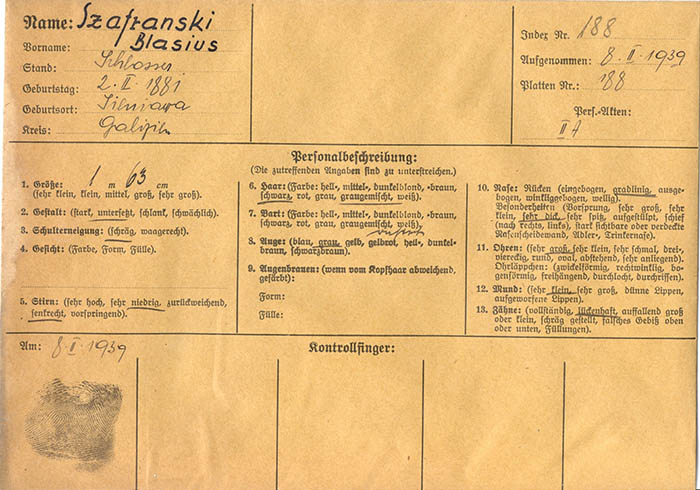 Name: Szafranski
Vorname: Blasius
Stand: Schlosser
Geburtstag: 2. II. 1881
Geburtsort: Sieniawa
Kreis: Galizien
Index Nr. 188
Aufgenommen: 8. II. 1939
Platten Nr.: 188
Pers.-Akten:
II A
Personalbeschreibung:
(Die zutreffenden Angaben sind zu unterstreichen.)
1. Größe: 1 m 63 cm
(sehr klein, klein, mittel, groß, sehr groß).
2. Gestalt: (stark, untersetzt, schlank, schwächlich).
3. Schulterneigung: (schräg, waagerecht).
4. Gesicht: (Farbe, Form, Fülle).
5. Stirn: (sehr hoch, sehr niedrig, zurückweichend,
senkrecht, vorspringend).
6. Haar: (Farbe: hell-, mittel-, dunkelblond, -braun,
schwarz, rot, grau, graugemischt, weiß).
7. Bart: (Farbe: hell-, mittel-, dunkelblond, -braun,
schwarz, rot, grau, graugemischt, weiß).
8. Auge: (blau, grau, gelb, gelbrot, hell-, dunkel-
braun, schwarzbraun).
9. Augenbrauen: (wenn vom Kopfhaar abweichend,
gefärbt):
Form:
Fülle:
10. Nase: Rücken (eingebogen, gradlinig, ausge-
bogen, winkliggebogen, wellig).
Besonderheiten (Vorsprung, sehr groß, sehr
klein, sehr dick, sehr spitz, aufgestülpt, schief
(nach rechts, links), stark sichtbare oder verdeckte
Nasenscheidewand, Adler-, Trinkernase).
11. Ohren: (sehr groß, sehr klein, sehr schmal, drei-,
viereckig, rund, oval, abstehend, sehr anliegend).
Ohrläppchen: (zwickelförmig, rechtwinklig, bo-
genförmig, freihängend, durchlocht, durchrissen).
12. Mund: (sehr klein, sehr groß, dünne Lippen,
aufgeworfene Lippen).
13. Zähne: (vollständig, lückenhaft, auffallend groß
oder klein, schräg gestellt, falsches Gebiß oben
oder unten, Füllungen).
Am: 8. II. 1939
Kontrollfinger: